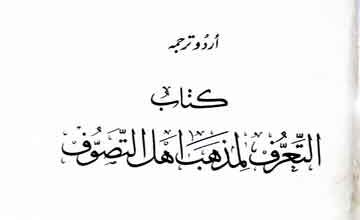 اُردُو ترجمہ
كتابُ
التَّعَرُّفِ لِمَذهَبِ اَهلِ التَّصَوُّفِ